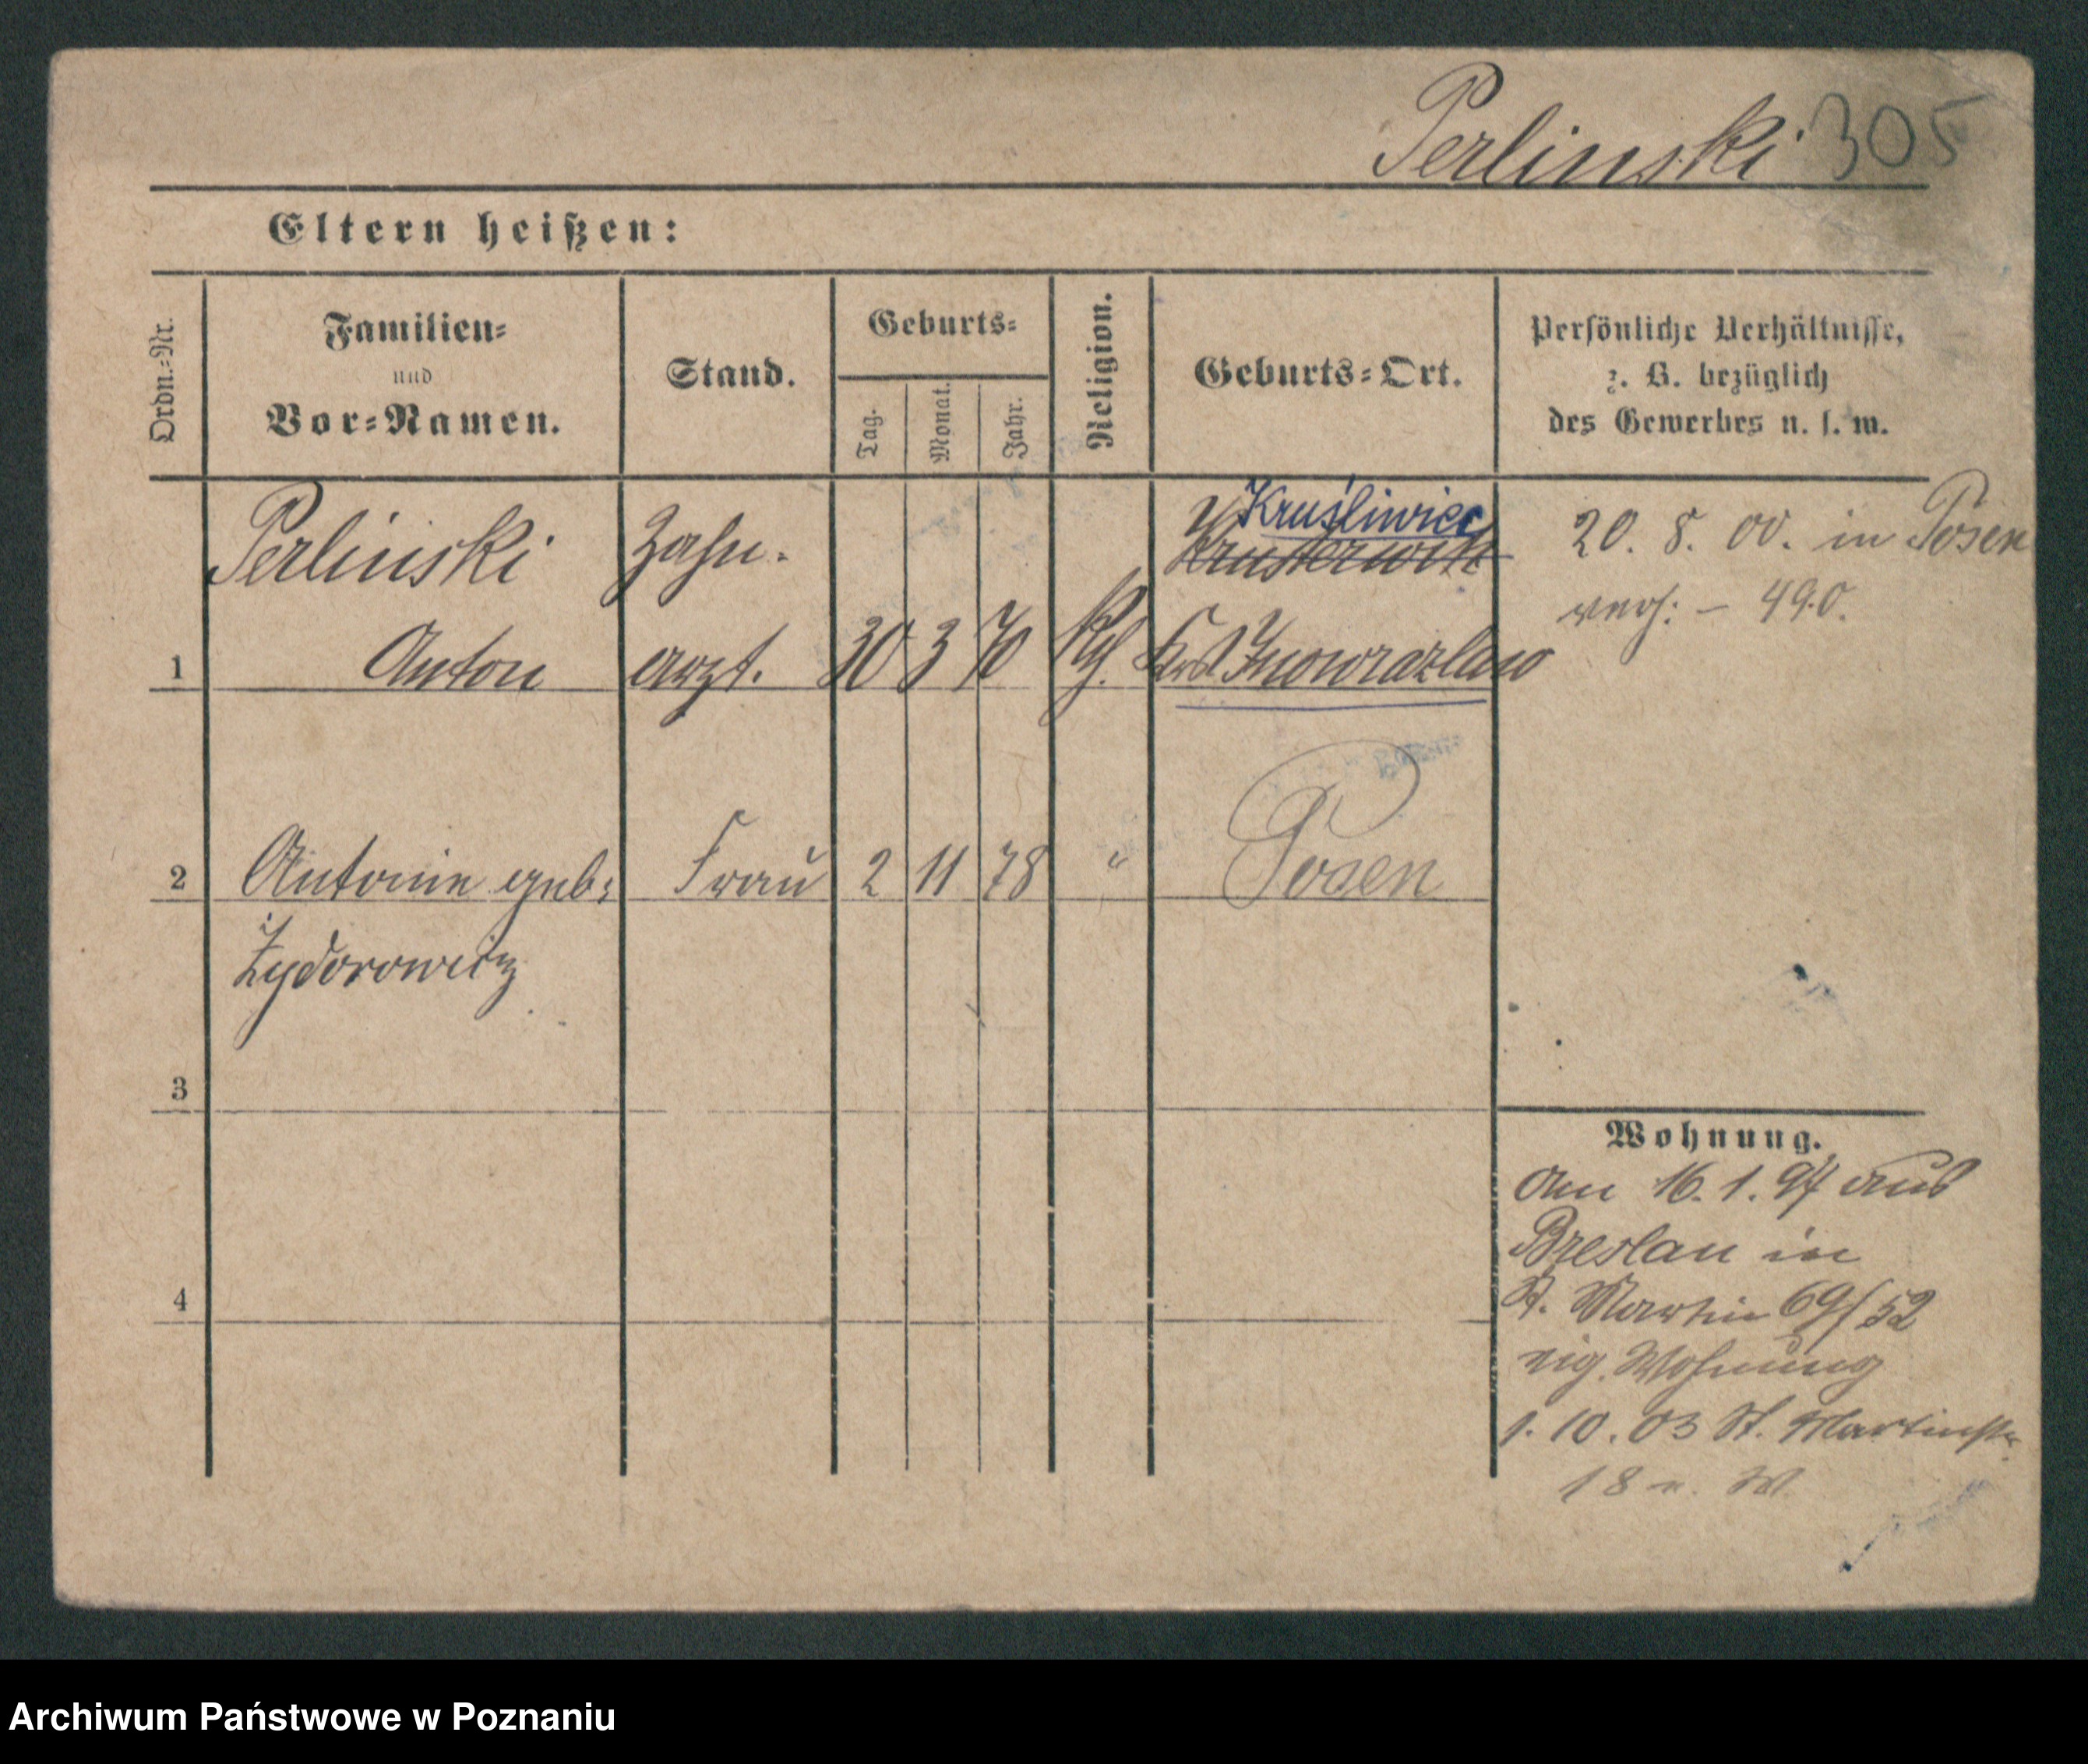 Perlinski 305
Eltern heißen:
Ordn.=Nr.
Familien=
und
Vor=Namen.
Stand.
Geburts=
Tag.
Monat.
Jahr.
Religion.
Geburts=Ort.
Persönliche Verhältnisse,
z. B. bezüglich
des Gewerbes u. s. w.
Perlinski Zahn-
Kruśliwiec
20. 8. 00. in Posen
verh: – 490.
1 Anton arzt. 30 3 70 Kth. Krs Inowrazlaw
2 Antonie geb: Frau 2 11 78 " Posen
Zydorowicz
3
4
Wohnung.
Am 16. 1. 97 aus
Breslau in
St. Martin 69/52
eig. Wohnung
1. 10. 03 St. Martinstr.
18 e. W
Archiwum Państwowe w Poznaniu